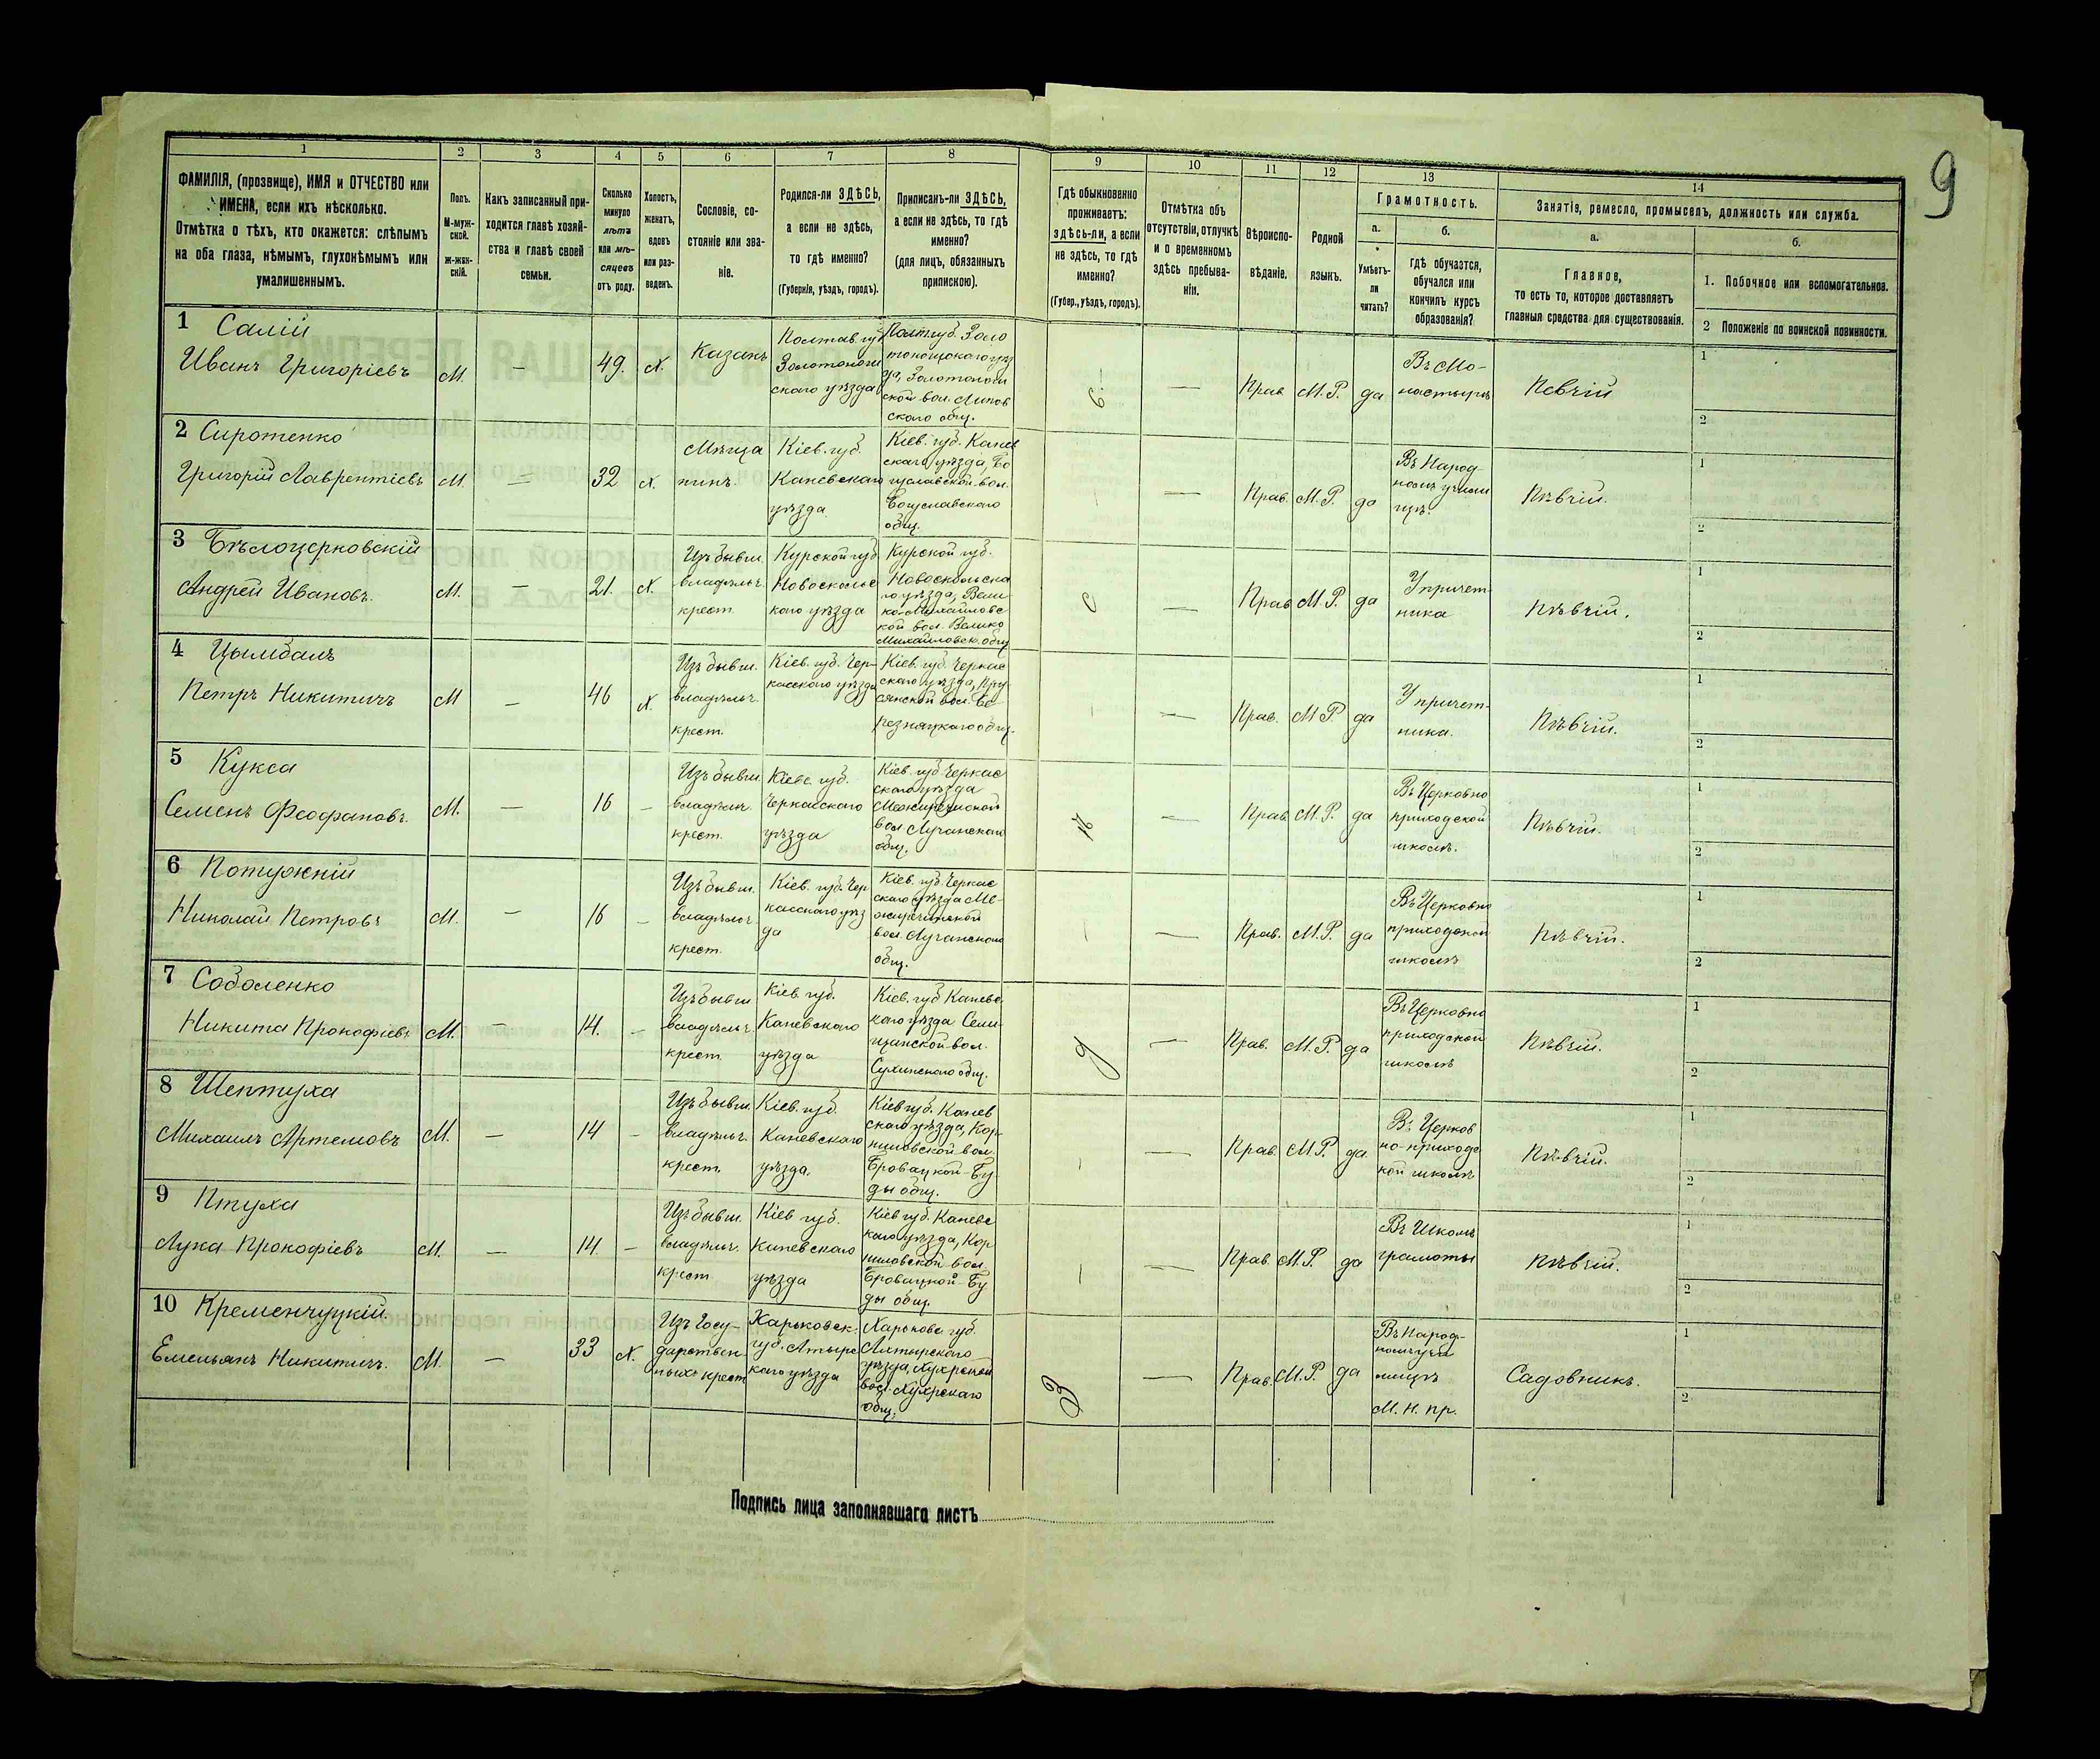 9
1 2 3 4 5 6 7 8 9 10 11 12 13 14
ФАМИЛІЯ, (прозвище), ИМЯ и ОТЧЕСТВО или
ИМЕНА, если ихъ нѣсколько.
Отмѣтка о тѣхъ, кто окажется: слѣпымъ
на оба глаза, нѣмымъ, глухонѣмымъ или
умалишеннымъ.
Полъ.
М-муж-
ской.
ж-жен-
скій.
Какъ записанный при-
ходится главѣ хозяй-
ства и главѣ своей
семьи.
Сколько
минуло
лѣтъ
или мѣ-
сяцевъ
отъ роду.
Холостъ,
женатъ,
вдовъ
или раз-
веденъ.
Сословіе, со-
стояніе или зва-
ніе.
Родился-ли ЗДѢСЬ,
а если не здѣсь,
то гдѣ именно?
(Губернія, уѣздъ, городъ).
Приписанъ-ли ЗДѢСЬ,
а если не здѣсь, то гдѣ
именно?
(для лицъ, обязанныхъ
припискою).
Гдѣ обыкновенно
проживаетъ:
здѣсь-ли, а если
не здѣсь, то гдѣ
именно?
(Губер., уѣздъ, городъ).
Отмѣтка объ
отсутствіи, отлучкѣ
и о временномъ
здѣсь пребыва-
ніи.
Вѣроиспо-
вѣданіе.
Родной
языкъ.
Грамотность.
а.
Умѣетъ-
ли
читать?
б.
гдѣ обучается,
обучался или
кончилъ курсъ
образованія?
Занятія, ремесло, промыселъ, должность или служба.
а.
Главное,
то есть то, которое доставляетъ
главныя средства для существованія.
б.
1. Побочное или вспомогательное.
2 Положеніе по воинской повинности.
1 Салій
Иванъ Григоріевъ
М.
—
49.
Х.
Казакъ
Полтав. губ
Золотонош
скаго уѣзда
Полт губ. Золо
тоношскаго уѣз
да, Золотонош
ской вол. Липов
скаго общ.
—
Прав
М.Р.
да
Въ Мо-
настырѣ
Певчій
1
2
2 Сиротенко
Григорій Лаврентіевъ
М.
—
32
Х.
Мѣща
нинъ.
Кіев. губ.
Каневскаго
уѣзда.
Кіев. губ. Канев
скаго уѣзда, Бо
гуславской вол.
Богуславскаго
общ.
—
Прав.
М.Р.
да
Въ Народ-
номъ учили
щѣ.
Пѣвчій.
1
2
3 Бѣлоцерковскій
Андрей Ивановъ.
М.
—
21.
Х.
Изъ бывш.
владѣльч.
крест.
Курской губ
Новооскольс
каго уѣзда
Курской губ.
Новооскольска
го уѣзда, Вели
ко-Михайловс
кой вол. Велико
Михайловск. общ
с
—
Прав
М.Р.
да
У причет
ника
Пѣвчій.
1
2
4 Цымбалъ
Петръ Никитичъ
М
—
46
Х.
Изъ бывш.
владѣльч.
крест.
Кіев. губ. Чер-
касскаго уѣзда
Кіев. губ. Черкас
скаго уѣзда,
вол. Бе-
резняцкаго общ.
—
Прав.
М.Р.
да
У причет-
ника.
Пѣвчій.
1
2
5 Кукса
Семенъ Феофановъ.
М.
—
16
—
Изъ бывш.
владѣльч.
крест.
Кіевс. губ.
Черкасскаго
уѣзда
Кіев. губ. Черкас
скаго уѣзда
Межиричской
вол Лучанскаго
общ.
—
Прав
М.Р.
да
Въ Церковно
приходской
школѣ.
Пѣвчій.
1
2
6 Потужній
Николай Петровъ
М.
—
16
—
Изъ бывш.
владѣльч
крест.
Кіев. губ. Чер
касскаго уѣз
да
Кіев. губ. Черкас
скаго уѣзда Ме-
жиричской
вол. Лучанскаго
общ.
—
Прав.
М.Р.
да
Въ Церковно
приходской
школѣ
Пѣвчій.
1
2
7 Соболенко
Никита Прокофіевъ
М.
—
14.
—
Изъ бывш
владѣльч.
крест.
Кіев. губ.
Каневскаго
уѣзда
Кіев. губ Каневс
каго уѣзда Сели
щанской вол.
Сухинскаго общ.
—
Прав.
М.Р.
да
Въ Церковно
приходской
школѣ
Пѣвчій.
1
2
8 Шептуха
Михаилъ Артемовъ
М.
—
14
—
Изъ бывш.
владѣльч.
крест.
Кіев. губ.
Каневскаго
уѣзда.
Кіев губ. Канев
скаго уѣзда, Кор-
ниловской вол.
Бровацкой-Бу
ды общ.
—
Прав
М.Р.
да
Въ Церков
но-приходс
кой школѣ
Пѣвчій.
1
2
9 Птуха
Лука Прокофіевъ
М.
—
14
—
Изъ бывш.
владѣльч.
крест
Кіев губ.
Каневскаго
уѣзда
Кіев губ. Каневс
каго уѣзда, Кор
ниловской вол.
Бровацкой-Бу
ды общ.
—
Прав.
М.Р.
да
Въ Школѣ
грамоты
Пѣвчій.
1
2
10 Кременчуцкій.
Емельянъ Никитичъ.
М.
—
33
Х.
Изъ Госу-
дарствен
ныхъ крест
Харьковск.
губ. Ахтырс
каго уѣзда
Харьковс губ.
Ахтырскаго
уѣзда, Кухрской
вол. Кухрскаго
общ.
—
Прав.
М.Р.
да
Въ Народ-
номъ учи
лищѣ
М. Н. пр.
Садовникъ.
1
2
Подпись лица заполнявшаго листъ